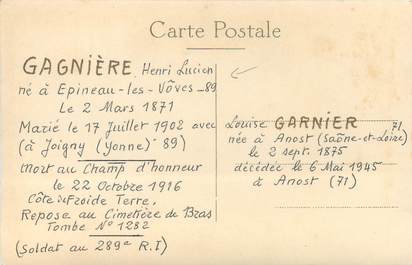 Carte Postale
GAGNIÈRE, Henri Lucien
né à Epineau-les-Vôves-89
Le 2 Mars 1871
Marié le 17 Juillet 1902 avec
(à Joigny (Yonne) 89)
Mort au Champ d'honneur
le 22 Octobre 1916
Côte de Froide Terre.
Repose au Cimetière de Bras
Tombe N° 1282
(Soldat au 289e R.I)
Louise GARNIER
71
née à Anost (Saône-et-Loire)
le 2 sept. 1875
décédée le 6 Mai 1945
à Anost (71)